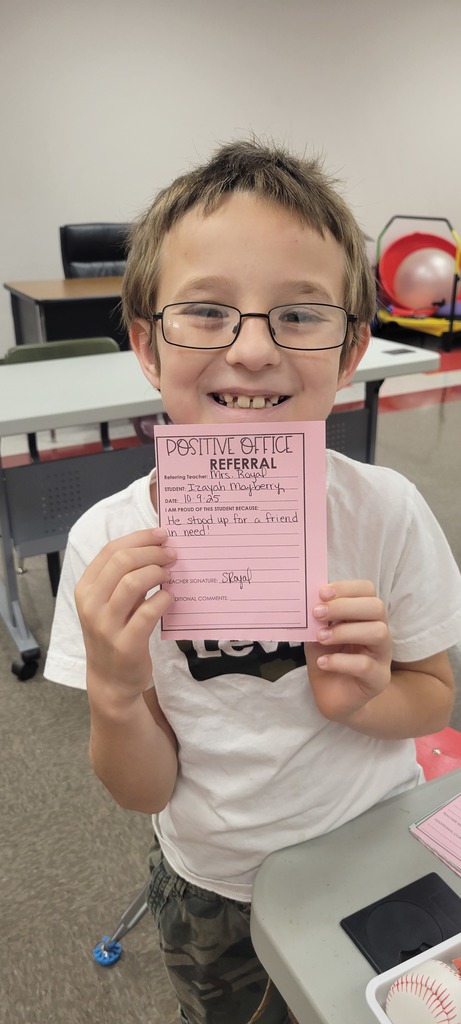 POSITIVE OFFICE
REFERRAL
Referring Teacher: Mrs. Royal
STUDENT: Izayah Mayberry
DATE: 10-9-25
I AM PROUD OF THIS STUDENT BECAUSE:
He stood up for a friend
in need!
TEACHER SIGNATURE: SRoyal
DITIONAL COMMENTS: